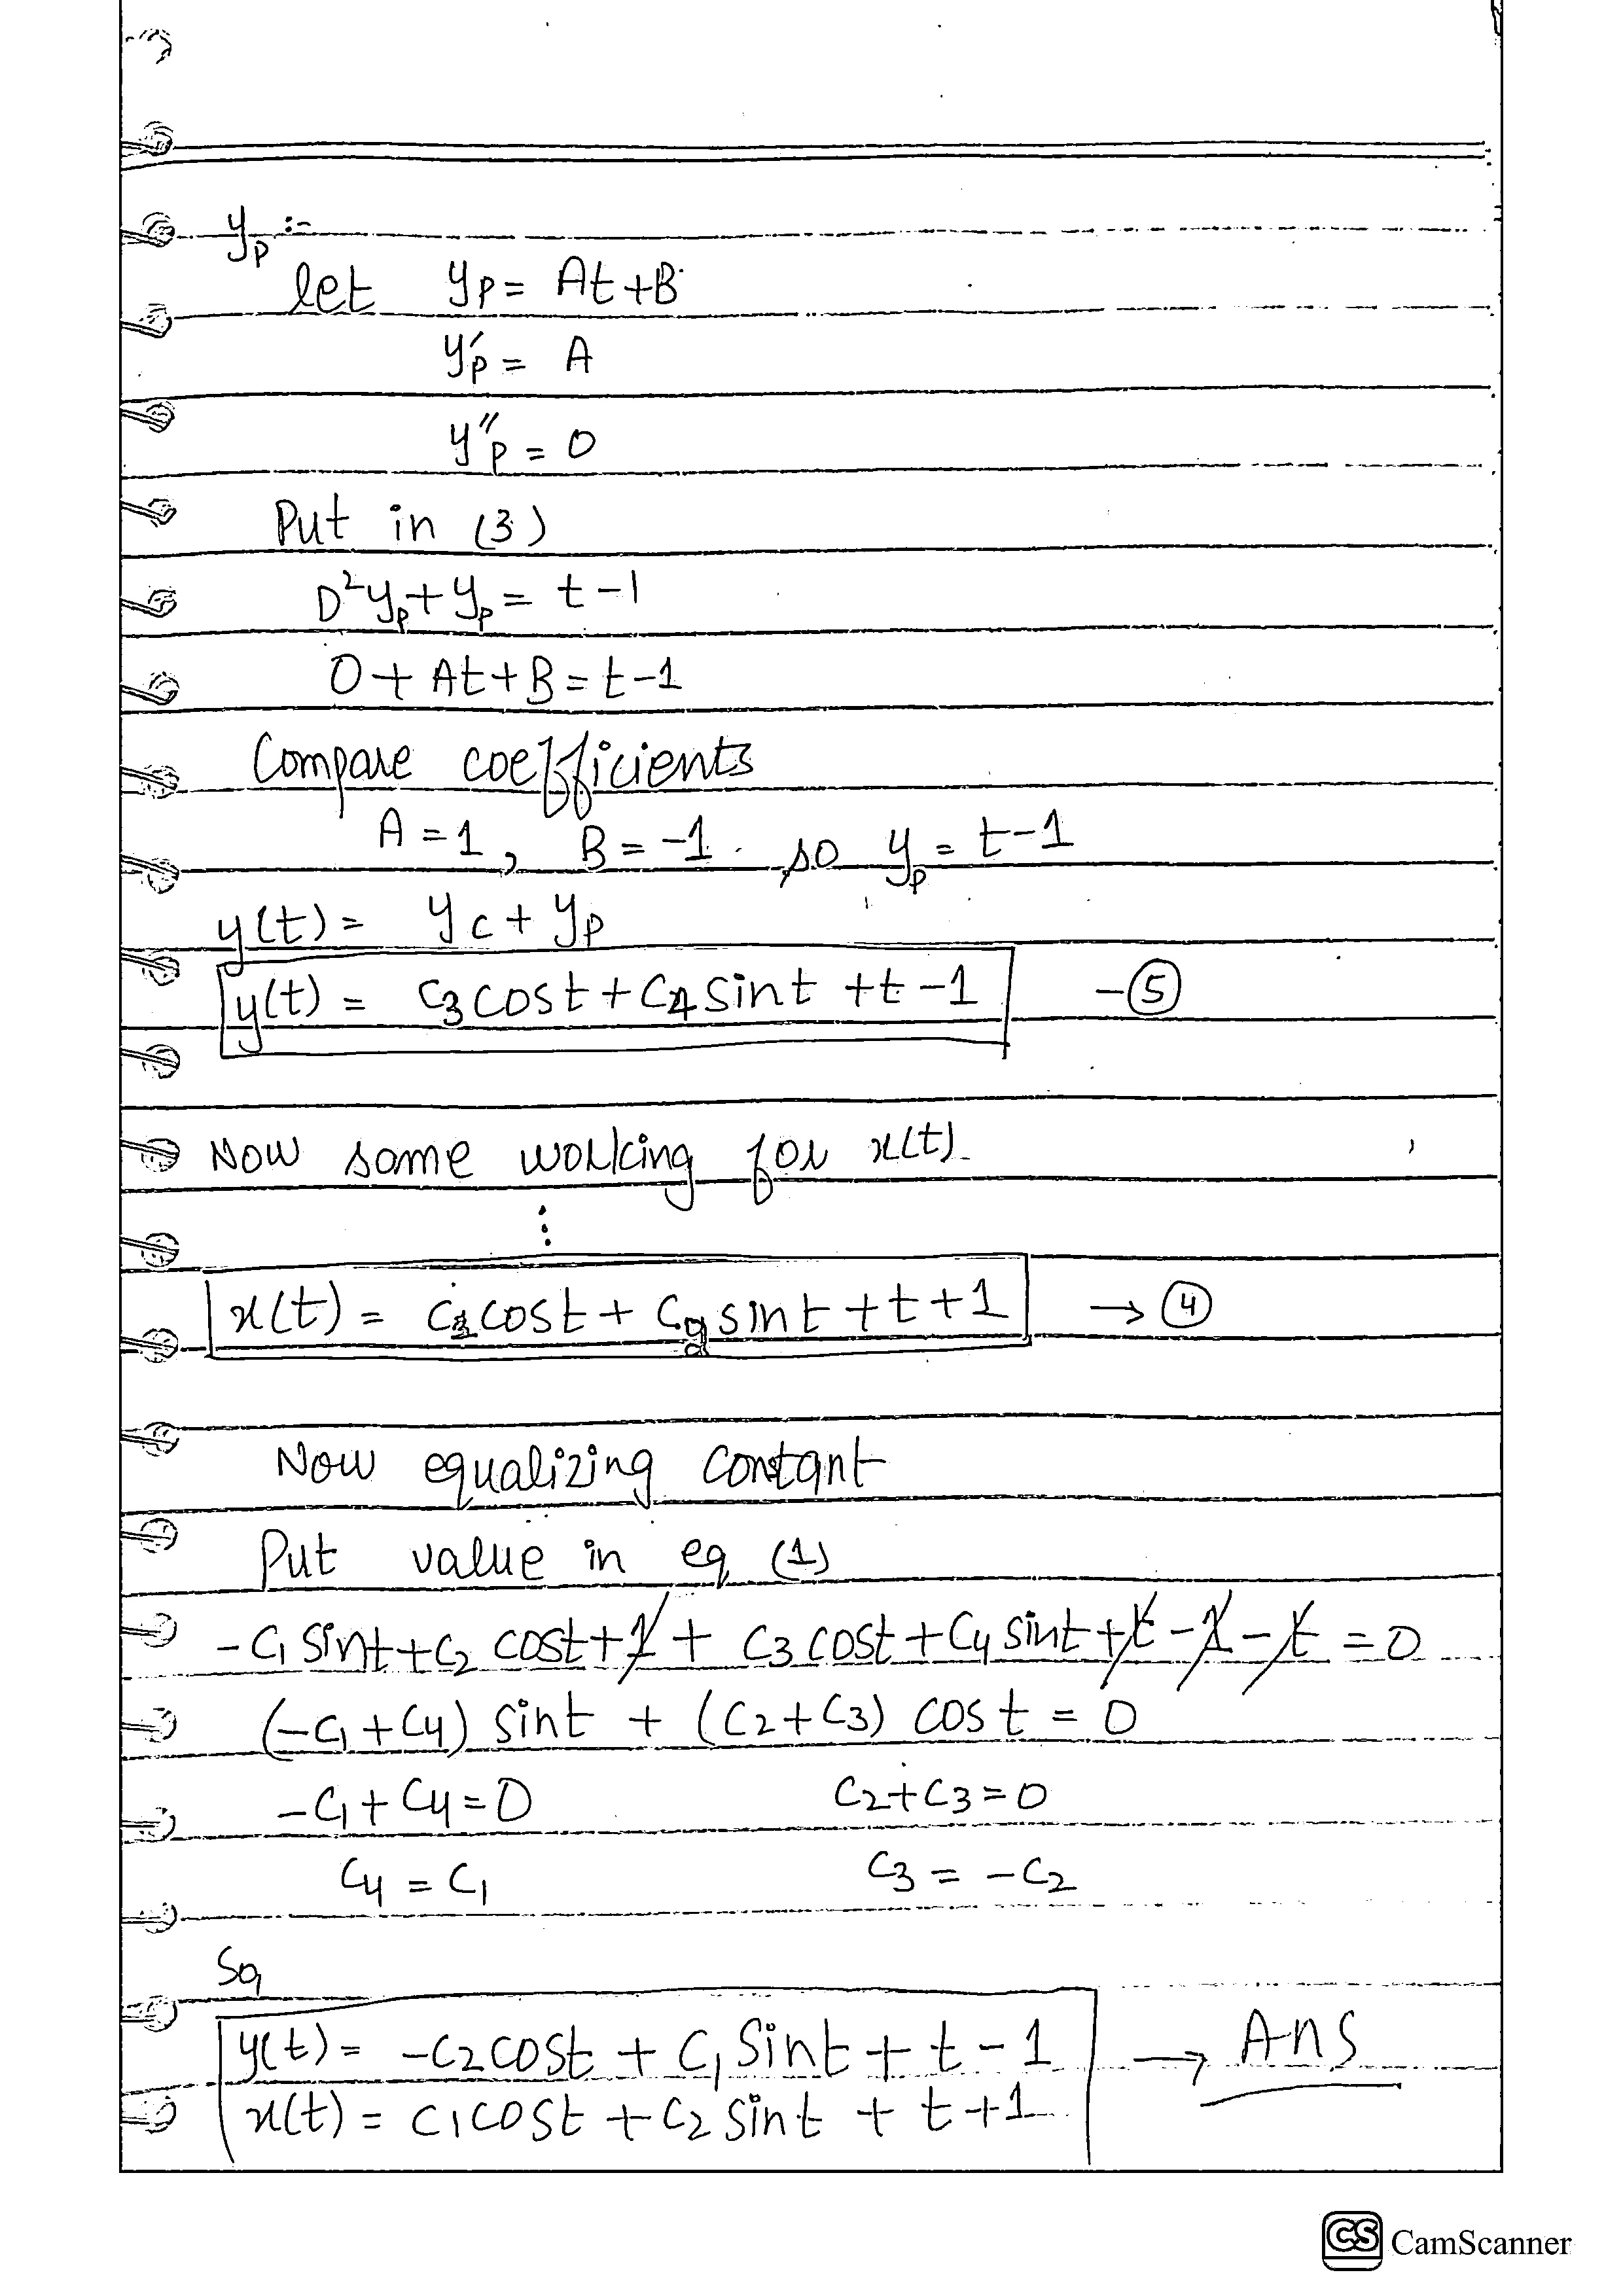 yp :-
let yp = At + B
y'p = A
y''p = 0
Put in (3)
D²yp + yp = t - 1
0 + At + B = t - 1
Compare coefficients
A = 1, B = -1. so yp = t - 1
y(t) = yc + yp
y(t) = c3 cost + c4 sint + t - 1 - ⑤
Now same working for x(t).
⋮
x(t) = c1 cost + c2 sint + t + 1 → ④
Now equalizing constant
Put value in eq (1)
-c1 sint + c2 cost + 1 + c3 cost + c4 sint + t - 1 - t = 0
(-c1 + c4) sint + (c2 + c3) cost = 0
-c1 + c4 = 0 c2 + c3 = 0
c4 = c1 c3 = -c2
So,
y(t) = -c2 cost + c1 sint + t - 1 → Ans
x(t) = c1 cost + c2 sint + t + 1
CS CamScanner